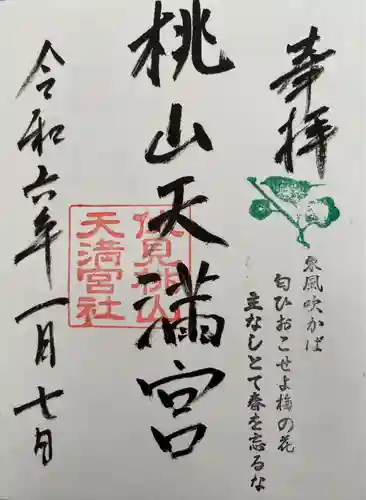 奉拝
東風吹かば
匂ひおこせよ梅の花
主なしとて春を忘るな
桃山天満宮
伏見桃山
天満宮社
令和六年一月七日